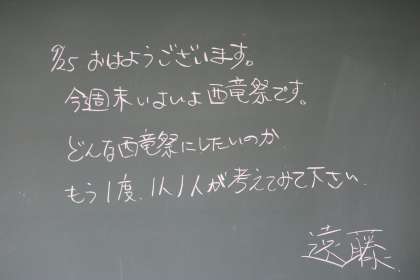 9/25 おはようございます。
今週末いよいよ西竜祭です。
どんな西竜祭にしたいのか
もう1度、1人1人が考えてみて下さい.
遠藤